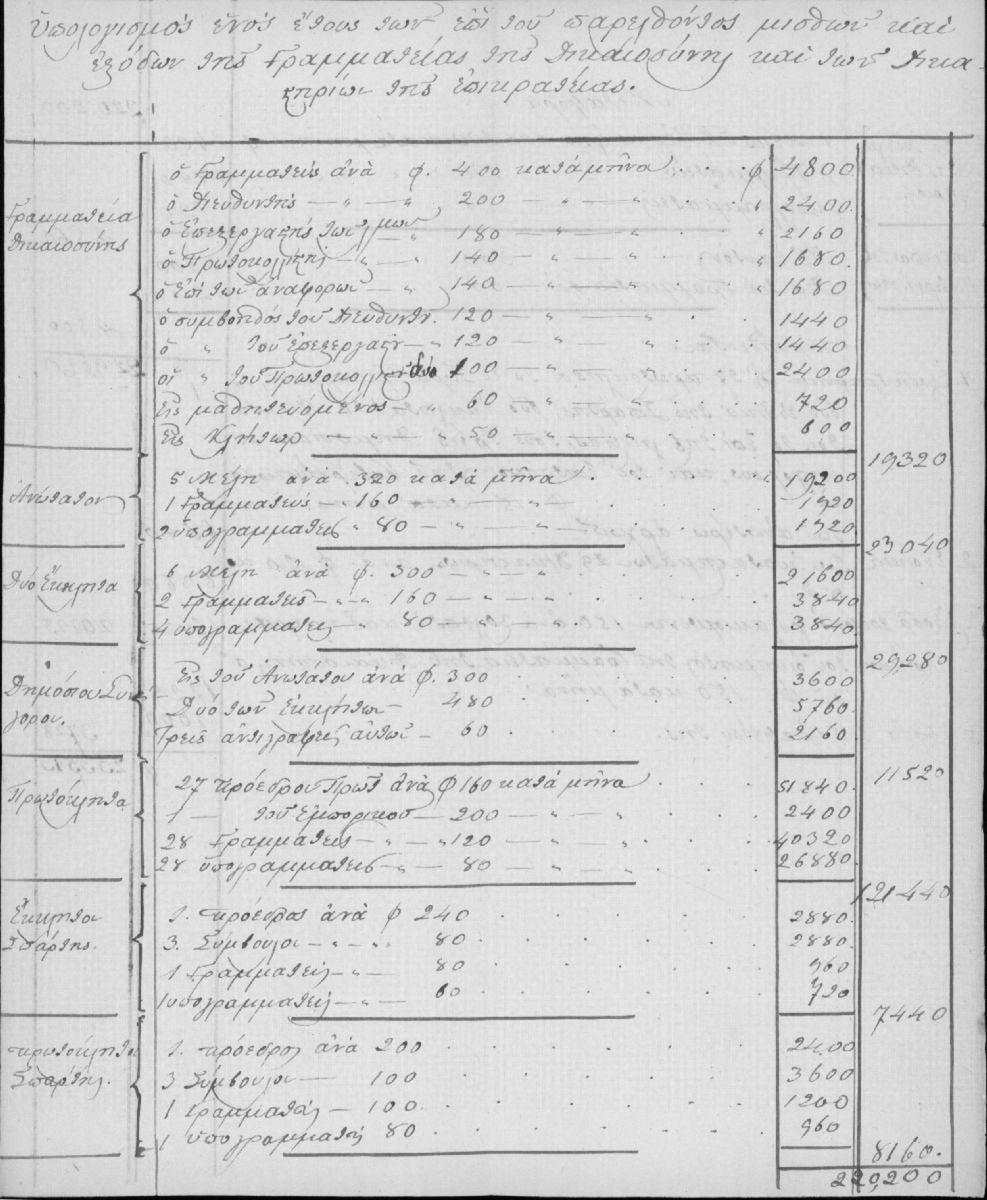 Ὑπολογισμὸς ἑνὸς ἔτους τῶν ἐπὶ τοῦ παρελθόντος μισθῶν καὶ
ἐξόδων τῆς Γραμματείας τῆς Δικαιοσύνης καὶ τῶν Δικα-
στηρίων τῆς Ἐπικρατείας.
Γραμματεία Δικαιοσύνης
ὁ Γραμματεὺς ἀνὰ φ. 400 κατὰ μῆνα . . φ 4800
ὁ Διευθυντὴς — " — " 200 — " — " — . " 2400.
ὁ Ἐπεξεργαστὴς — " 180 — " — " — . " 2160
ὁ Πρωτοκολλιστὴς — " — " 140 — " — " . " 1680.
ὁ Ἐπὶ τῶν ἀναφορῶν — " 140 — " — " . " 1680
ὁ συμβοηθὸς τοῦ Διευθυντ. 120 — " — " — . 1440
ὁ " τοῦ Ἐπεξεργαστ. — " 120 — " — " . 1440
οἱ " τοῦ Πρωτοκολλιστοῦ δύο 100 — " 2400
Εἷς μαθητευόμενος " 60 " " . 720
Εἷς Κλήτωρ — " — 50 — " — " . 600
19320
Ἀνώτατον
5 Μέλη ἀνὰ 320 κατὰ μῆνα . . . 19200
1 Γραμματεὺς — 160 — " — " . . . 1920
2 ὑπογραμματεῖς " 80 — " — " . . . 1920
23040
Δύο Ἔκκλητα
6 Μέλη ἀνὰ φ. 300 — " — " . . . 21600
2 Γραμματεῖς — " — " 160 — " — " . . . 3840
4 ὑπογραμματεῖς " 80 — " — " . . . 3840.
29,280
Δημόσιοι Συνήγοροι.
Εἷς τοῦ Ἀνωτάτου ἀνὰ φ. 300 . . . 3600
Δύο τῶν Ἐκκλήτων — 480 . . . 5760.
Τρεῖς ἀντιγραφεῖς αὐτῶν — 60 . . . 2160.
11520
Πρωτόκλητα
27 Πρόεδροι Πρωτ. ἀνὰ φ 160 κατὰ μῆνα 51840.
1 — τοῦ Ἐμπορικοῦ — 200 — " — " . . 2400
28 Γραμματεῖς — " — " 120 — " — " . . 40320
28 ὑπογραμματεῖς " — 80 — " — " . . 26880.
121440
Ἔκκλητον Σπάρτης.
1. Πρόεδρος ἀνὰ φ 240 . . . . 2880.
3. Σύμβουλοι — " — " 80 . . . . 2880.
1 Γραμματεὺς — " — 80 . . . . 960
1 ὑπογραμματεὺς — " — 60 . . . . 720
7440
Πρωτόκλητον Σπάρτης.
1. Πρόεδρος ἀνὰ 200 . . . . 2400
3 Σύμβουλοι — 100 . . . . 3600
1 Γραμματεὺς — 100. . . . . 1200
1 ὑπογραμματεὺς 80 . . . . 960
8160.
220,200